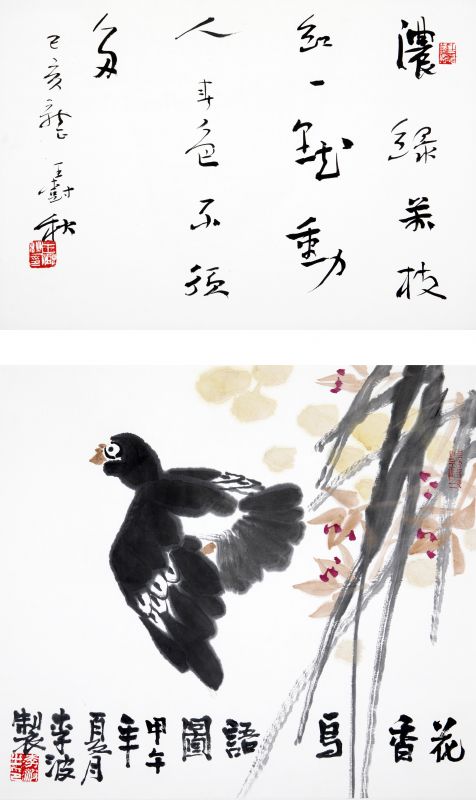 濃綠萬枝
紅一點動
人春色不須
多
己亥王樹秋
花香鳥語圖
甲午
年
夏月
李波
製